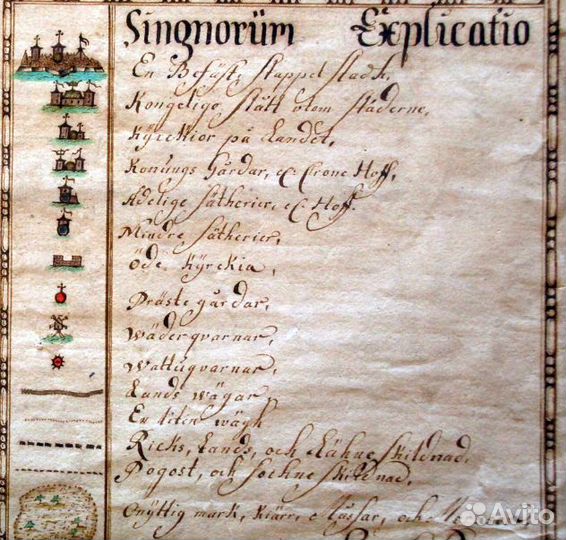 Singnorüm Explicatio
En Befäst Stappel Stadh,
Kongelige Slått utom städerne,
Kyrckior på Landet,
Konungs Gårdar, et Crone Hoff,
Adelige Sätherier, et Hoff.
Mindre Sätherier,
Öde Kyrckia,
Präste gårdar,
Wäderqvarnar,
Wattuqvarnar,
Lands wägar
En liten wägh
Ricks, Lands, och Lähns skildnad,
Pogost, och sochne skildnad,
Onyttig mark, kiärr, Måssar, och
Avito